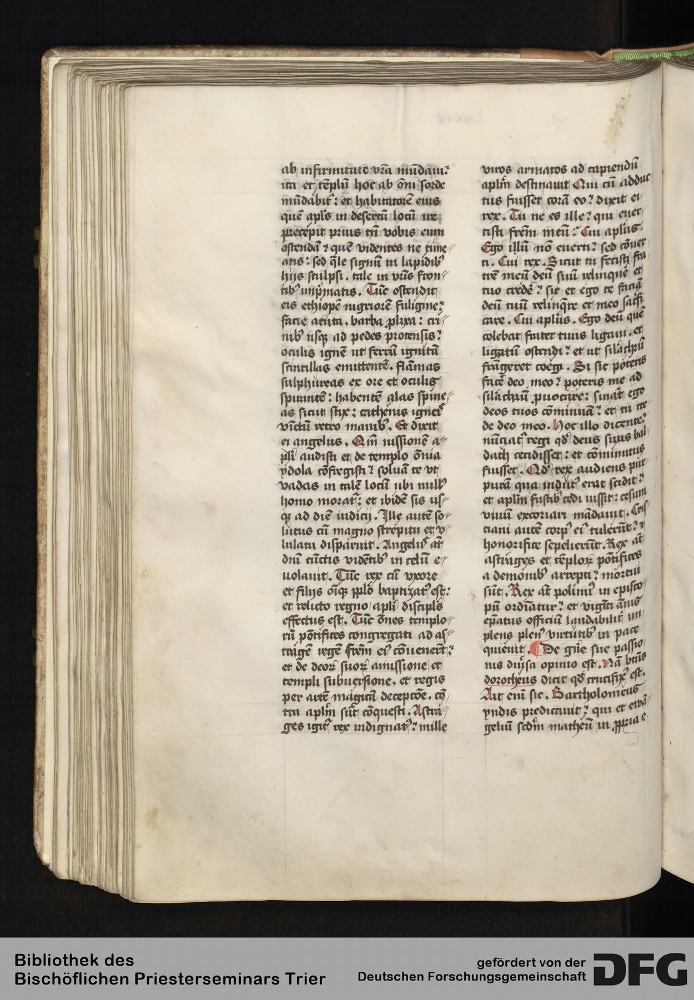 ab infirmitate vr̄a mūdauit
ita et tēplū hoc ab om̄i sorde
mūdabit᷑: et habitatorē eius
quē apl̓s in desertū locū ire
precepit prius tn̄ vobis eum
ostendā? quē videntes ne time
atis: sed q̄le signū in lapidib᷒
hijs sculpsi. tale in vr̄is fron
tib᷒ imp̄matis. Tūc ostendit
eis ethiopē nigriorē fuligine:
facie acuta. barba ꝓlixa: cri
nib᷒ usqꝫ ad pedes protensis:
oculis ignēt ut ferrū ignitū
scintillas emittentē. flāmas
sulphureas ex ore et oculis
spirantē: habentē alas spine
as sicut strix: cathenis igneis
vīctū retro manib᷒. Et dixit
ei angelus. Qm̄ iussionē a
pl̓i audisti et de templo om̄ia
ydola cōfregisti? soluā te vt
vadas in talē locū ubi null᷒
homo morat᷑: et ibidē sis us
qꝫ ad diē iudicij. Ille autē so
lutus cū magno strepitu et v
lulatu disparuit. Angelus aūt
dn̄i cūctis videntib᷒ in celū e
uolauit. Tūc rex cū vxore
et filijs om̄iqꝫ pp̄lo baptizat᷒ est:
et relicto regno apl̓i discipl̓s
effectus est. Tūc om̄es templo
rū pōtifices congregati ad as
tragē regē frēm ei᷒ cōuenerūt:
et de deoꝝ suoꝝ amissione et
templi subuersione. et regis
per artē magicā deceptōe. cō
tra apl̓m sūt cōquesti. Astra
ges igit᷑ rex indignat᷒: mille
viros armatos ad capiendū
apl̓m destinauit Qui cū adduc
tus fuisset corā eo? dixit ei
rex. Tu ne es ille? qui euer
tisti frēm meū? Cui apl̓us.
Ego illū nō euerti? sed cōuer
ti. Cui rex. Sicut tu fecisti fra
trē meū deū suū relinquē et
tuo credē? sic et ego te faciā
deū tuū relinq̄re et meo sacfi
care. Cui apl̓us. Ego deū quē
colebat frater tuus ligaui. et
ligatū ostendi? et ut silachrū
frāgeret coegi. Si sic poteris
facē deo meo? poteris me ad
silachrū ꝓuocare: sinaūt ego
deos tuos cōminuā? et tu cre
de deo meo. Hoc illo dicente?
nūciat᷑ regi qd̄ deus suus bal
dach cecidisset: et cōminutus
fuisset. Qd̄ rex audiens pur
purā qua indut᷒ erat scidit?
et apl̓m fustib᷒ cedi iussit: cesum
viuū excoriari mādauit. Cris
tiani autē corp᷒ ei᷒ tulerūt: ⁊
honorifice sepelierūt. Rex aūt
astragys et tēploꝝ pōtifices
a demonib᷒ arrepti? mortui
sūt. Rex aūt polimi᷒ in episco
pū ordīatur? et viginti ānis
ep̄atus officiū laudabilit᷑ im
plens plen᷒ virtutib᷒ in pace
quieuit. De gn̄e sue passio
nis diu̓sa opinio est. Nā btūs
dorotheus dicit qd̄ crucifix᷒ est.
Ait enī sic. Bartholomeus
yndis predicauit? qui et euā
geliū scdm̄ matheū in ꝓpria e
Bibliothek des
Bischöflichen Priesterseminars Trier
gefördert von der
Deutschen Forschungsgemeinschaft
DFG